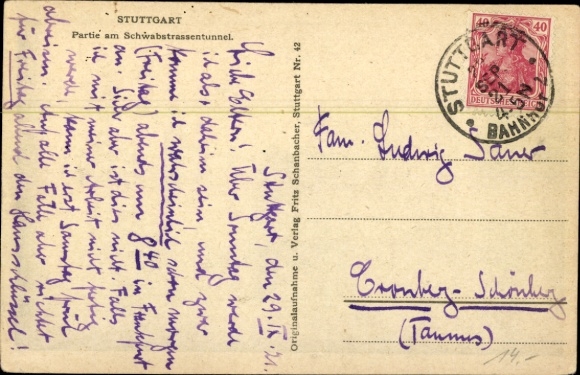 STUTTGART
Partie am Schwabstrassentunnel.
Stuttgart, den 29. IV. 21.
Liebe Eltern! Über Sonntag werde
ich also daheim sein und zwar
komme ich wahrscheinlich schon morgen
(Freitag) abends um 8 40 in Frankfurt
an. Sicher aber ist dies nicht. Falls
ich mit meiner Arbeit nicht fertig
werde, komme ich erst Samstag früh
daheim. Auf alle Fälle aber richtet
für Freitag abend den Hausschlüssel!
Originalaufnahme u. Verlag Fritz Schanbacher, Stuttgart Nr. 42
40 40
DEUTSCHES REICH
STUTTGART
BAHNHOF
Fam. Ludwig Sauer
Cronberg-Schönberg
(Taunus)
14.-